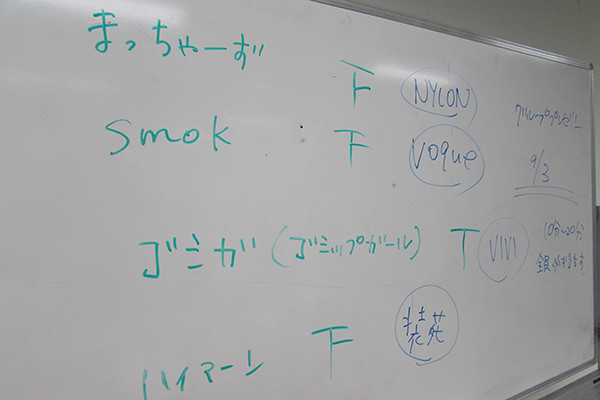 まっちゃーず
下 NYLON
グループプレゼン
smok 下 VOgue
9/3
ゴミガ (ゴミップガール) T ViVi
(10分~20分)
全員
下 装苑